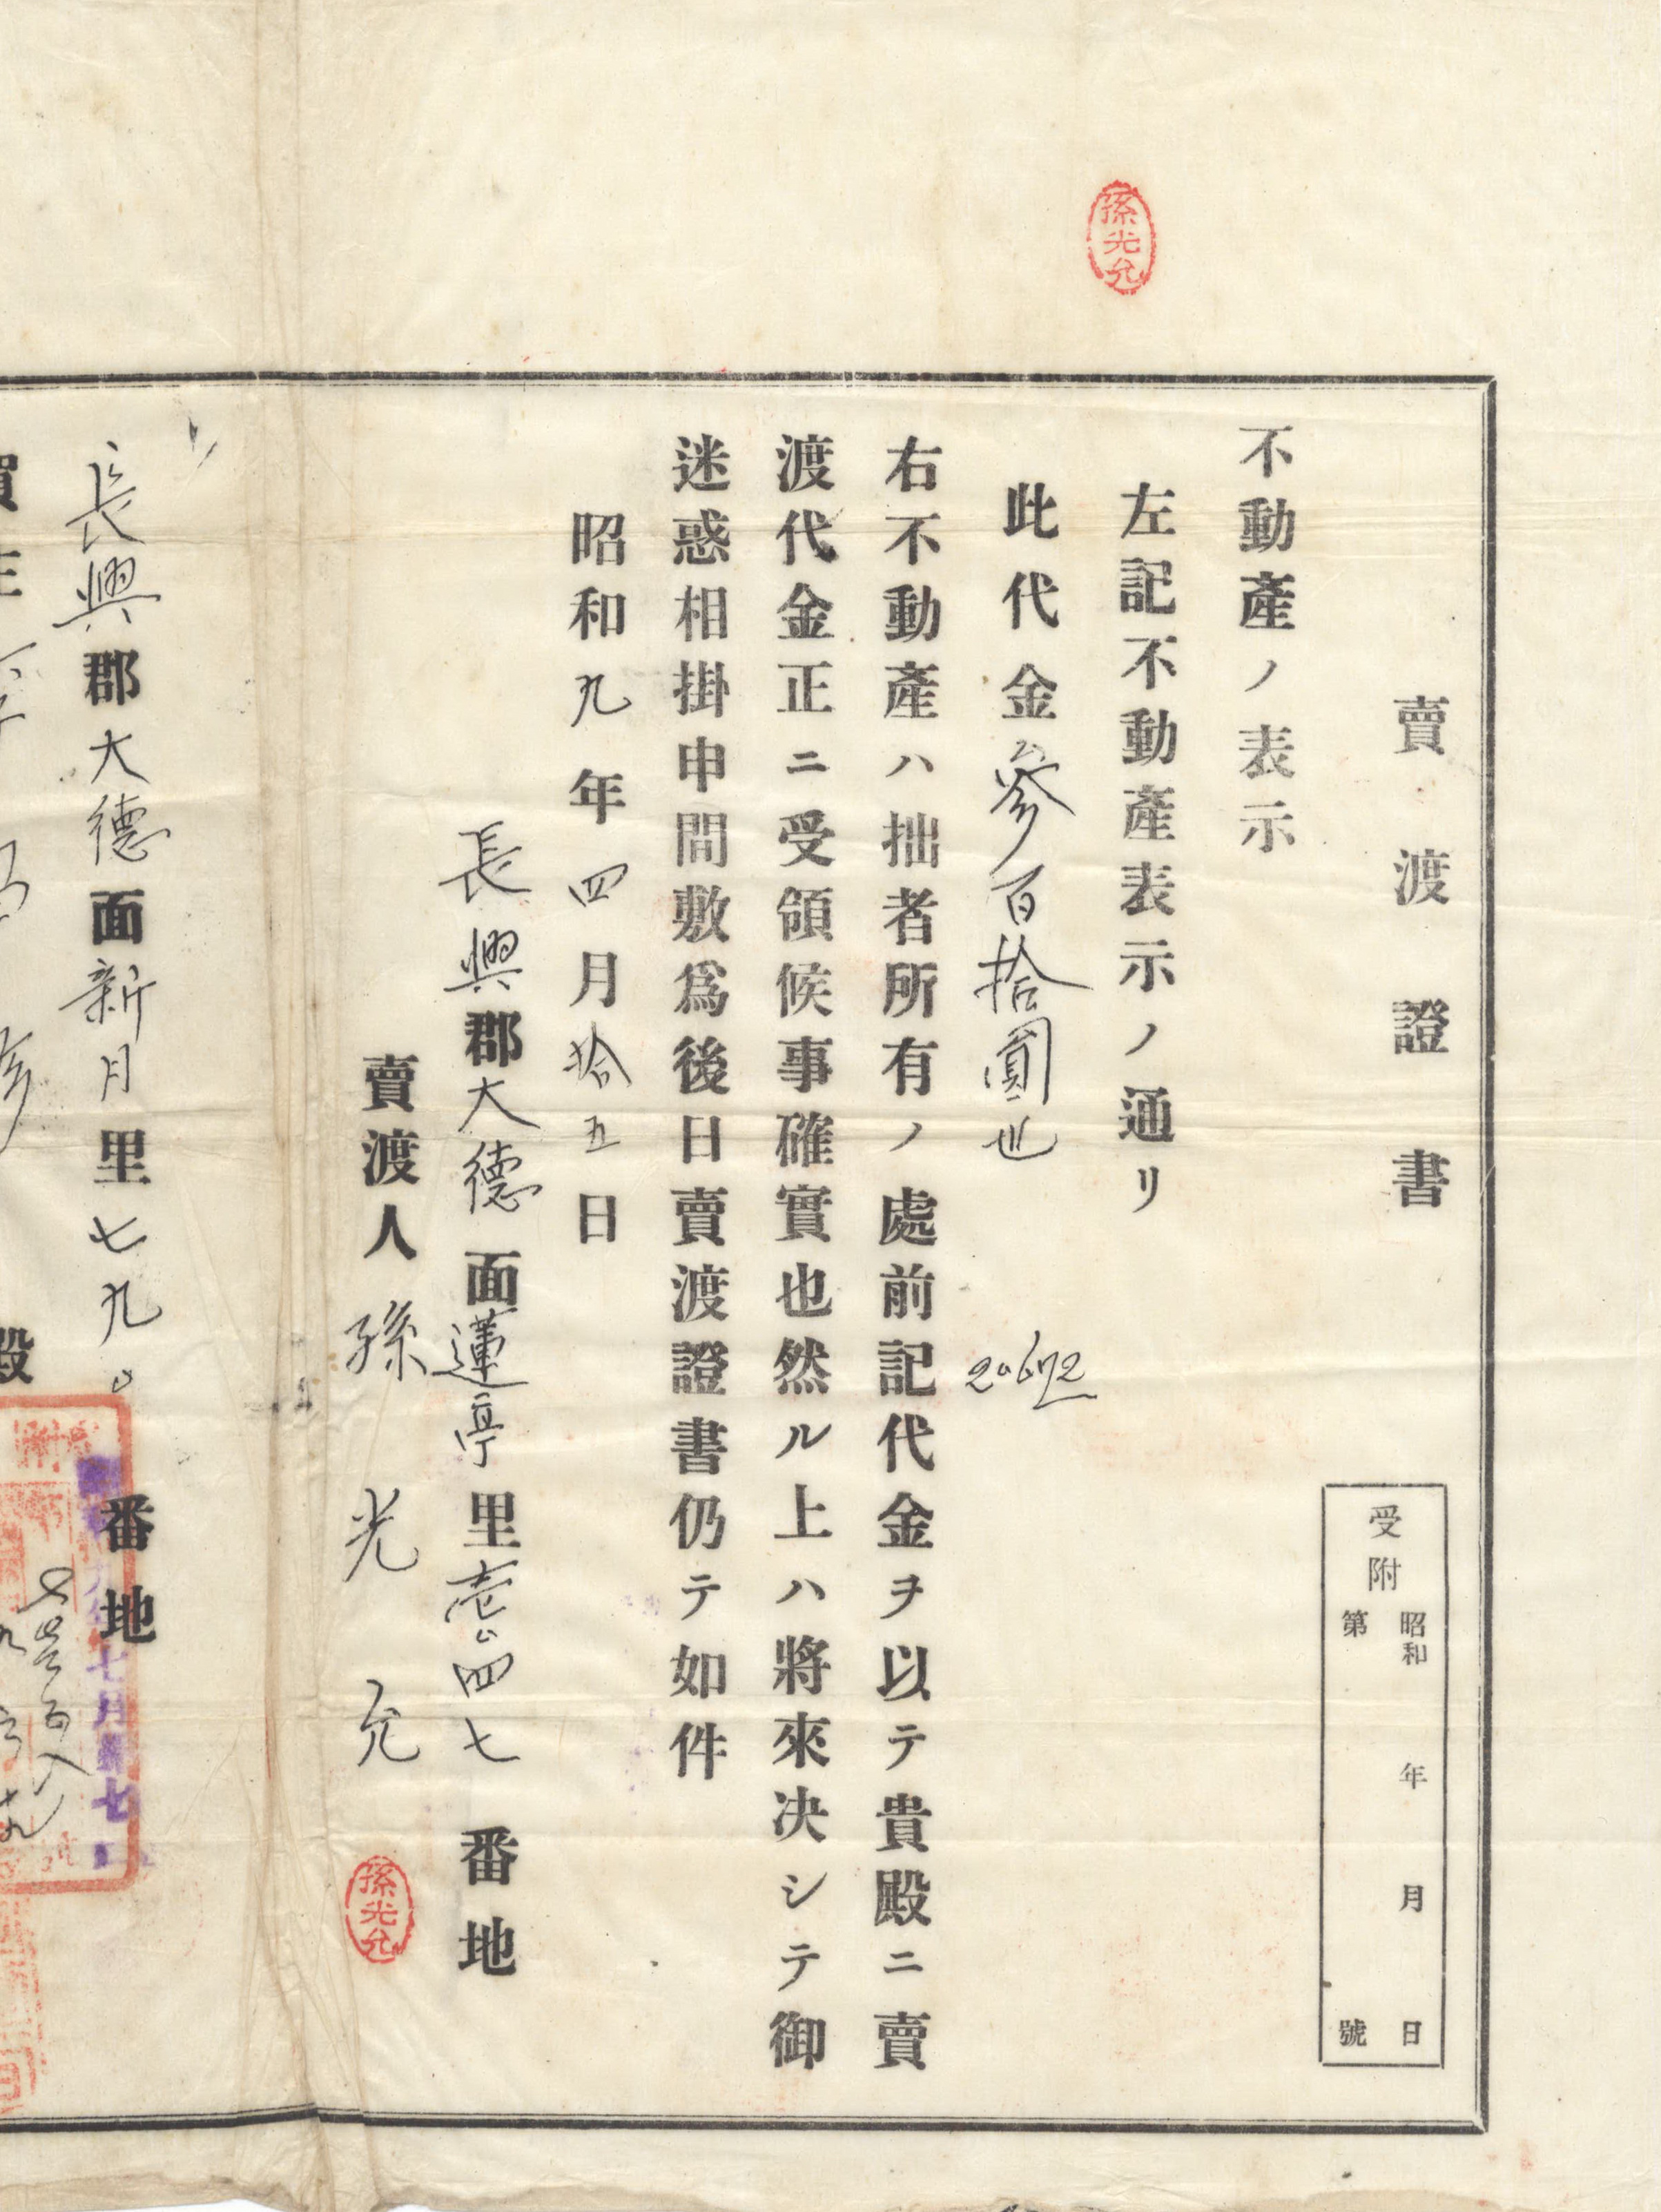 賣渡證書
受附
昭和 年 月 日
第 號
不動產ノ表示
左記不動產表示ノ通リ
此代金參百拾圓也
20672
右不動產ハ拙者所有ノ處前記代金ヲ以テ貴殿ニ賣
渡代金正ニ受領候事確實也然ル上ハ將來決シテ御
迷惑相掛申間敷爲後日賣渡證書仍テ如件
昭和九年四月拾五日
長興郡大德面蓮亭里壱四七番地
賣渡人 孫光允
孫光允
孫光允
長興郡大德面新月里七九番地
殿